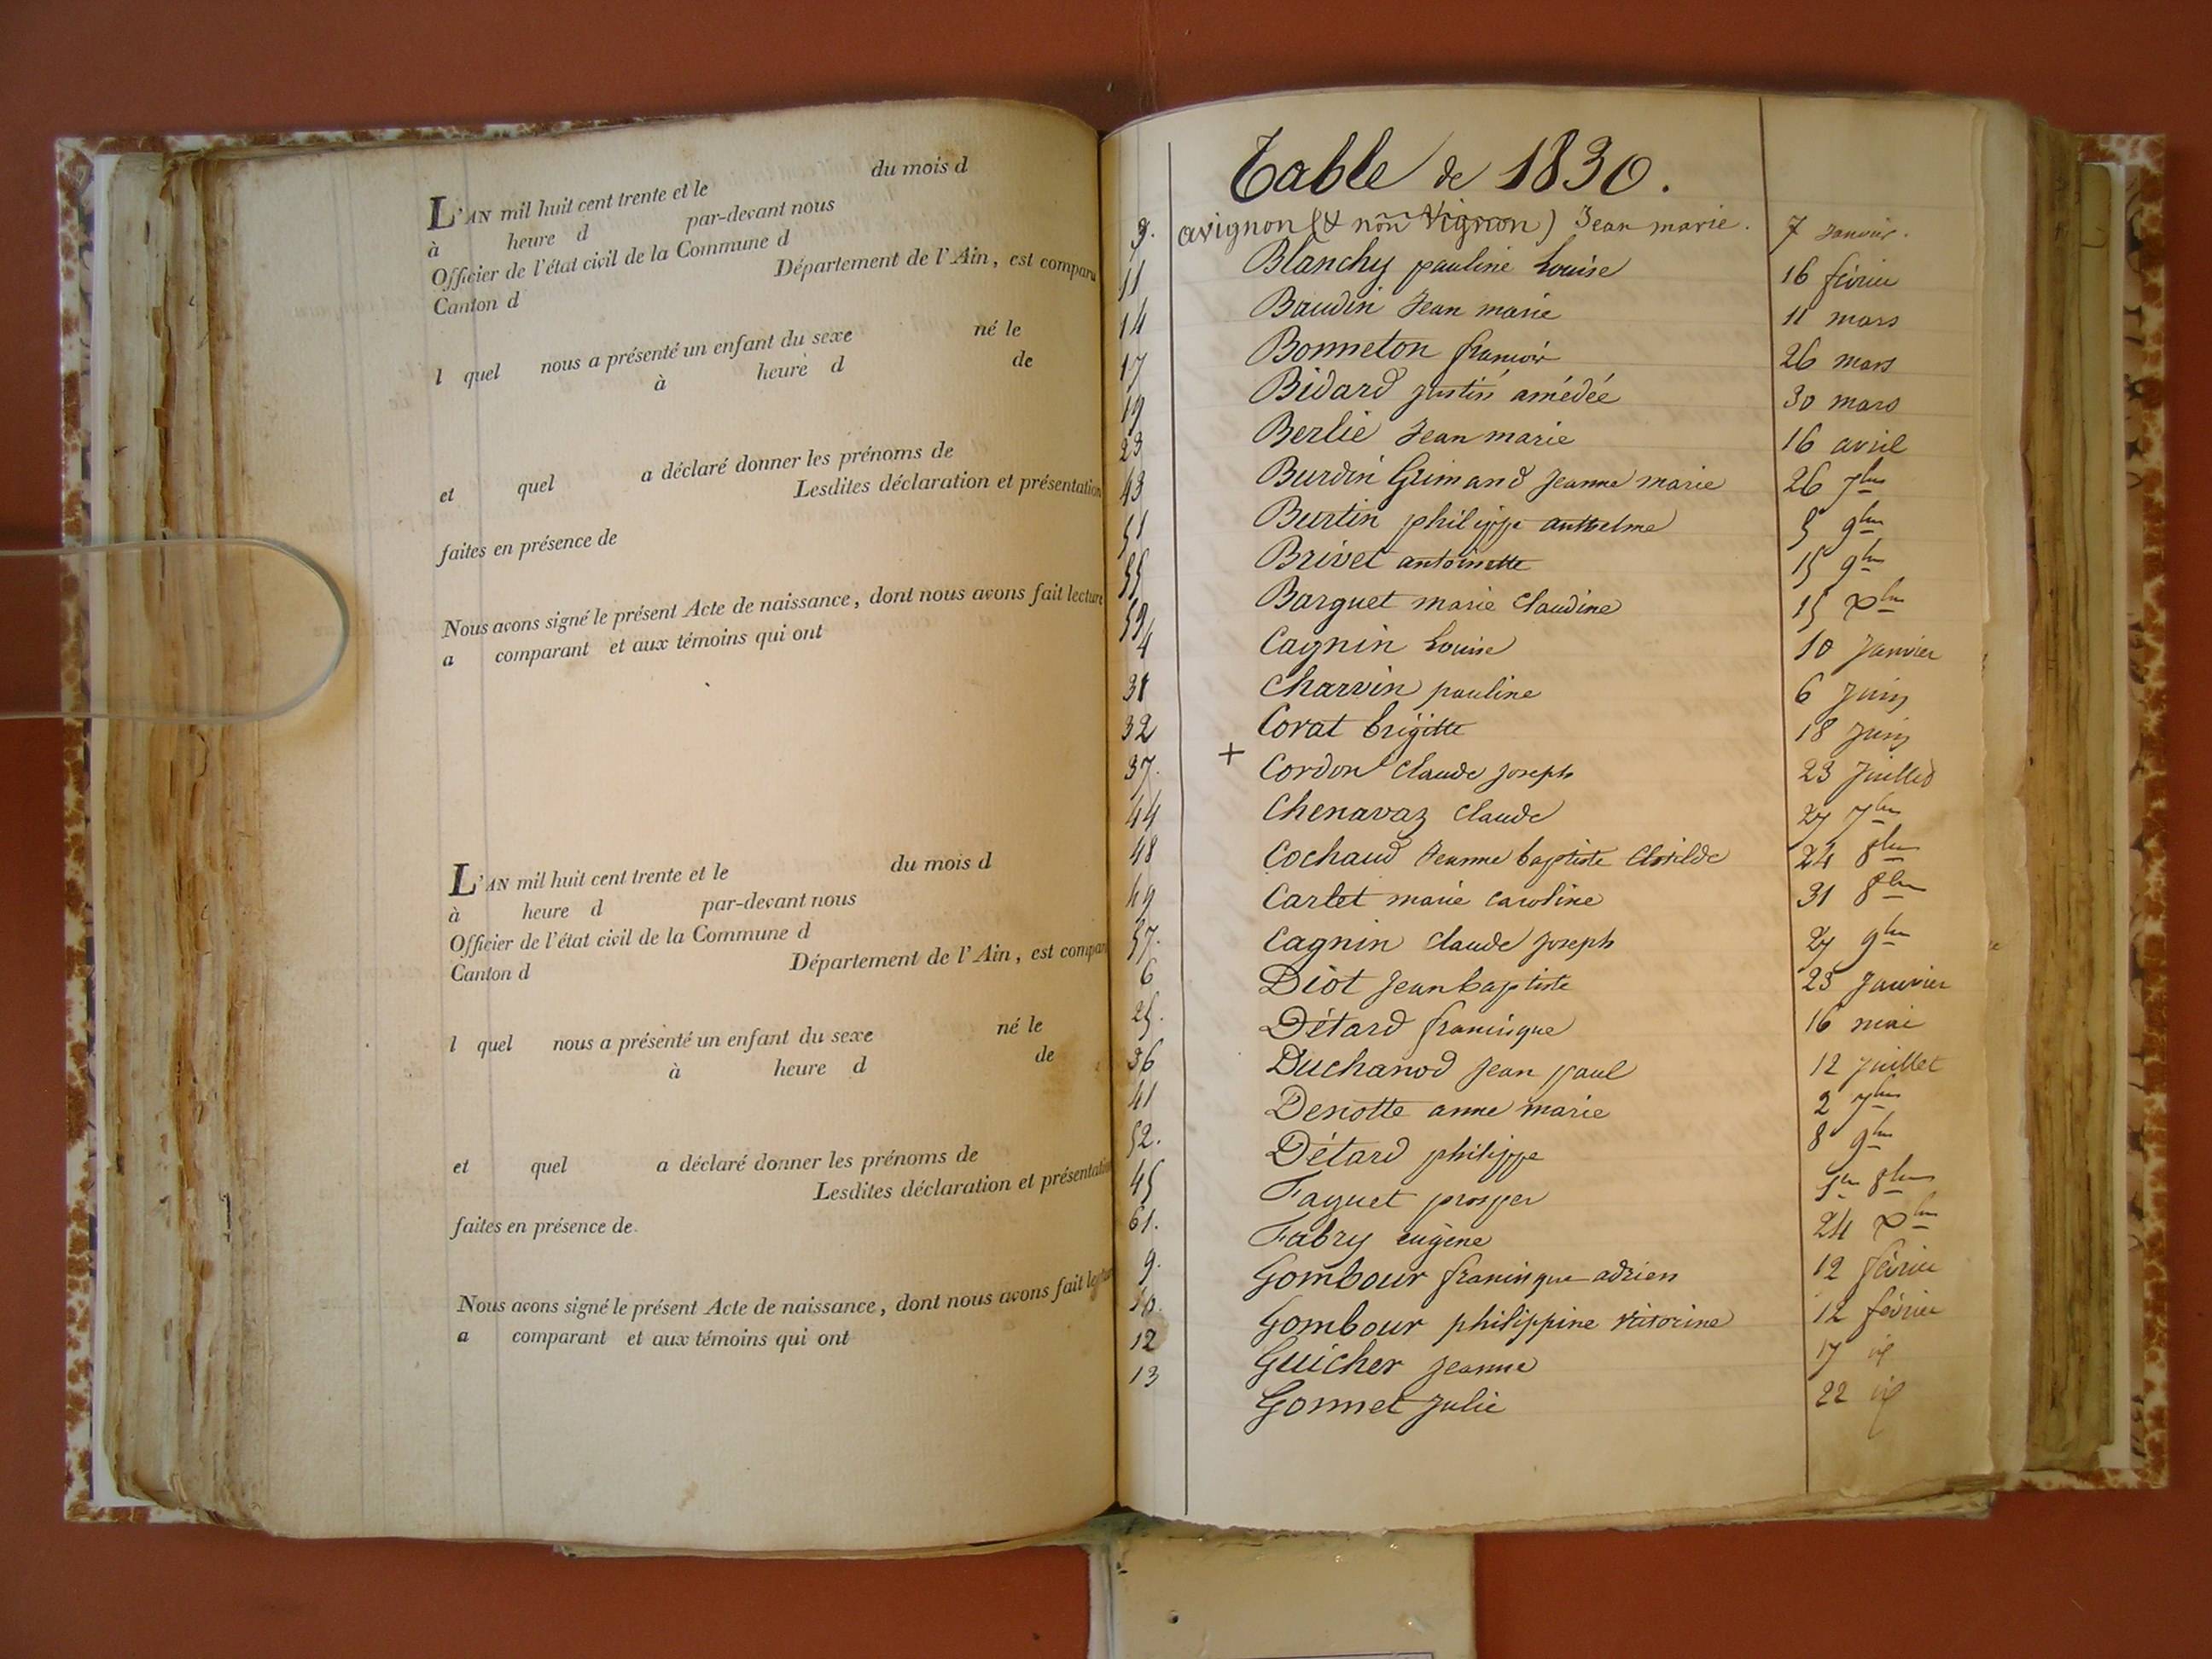 L'AN mil huit cent trente et le du mois d
à heure d par-devant nous
Officier de l'état civil de la Commune d
Canton d Département de l'Ain, est comparu
l quel nous a présenté un enfant du sexe né le
à heure d de
et quel a déclaré donner les prénoms de
Lesdites déclaration et présentation
faites en présence de
Nous avons signé le présent Acte de naissance, dont nous avons fait lecture
a comparant et aux témoins qui ont
L'AN mil huit cent trente et le du mois d
à heure d par-devant nous
Officier de l'état civil de la Commune d
Canton d Département de l'Ain, est compar
l quel nous a présenté un enfant du sexe né le
à heure d de
et quel a déclaré donner les prénoms de
Lesdites déclaration et présentation
faites en présence de
Nous avons signé le présent Acte de naissance, dont nous avons fait lecture
a comparant et aux témoins qui ont
Table de 1830.
3. avignon (& non Vignon) Jean marie. 7 Janvier.
11 Blanchy pauline Louise 16 février
14 Baudin Jean marie 11 mars
17 Bonneton françois 26 mars
19 Bidard justin amédée 30 mars
23 Berlie Jean marie 16 avril
43 Burdin Grimand jeanne marie 26 7bre
51 Burtin philippe anthelme 5 9bre
55 Brivet antoinette 15 9bre
59 Barguet marie Claudine 15 Xbre
4 Cagnin Louise 10 Janvier
31 Charvin pauline 6 Juin
32 Corat brigitte 18 Juin
37. + Cordon Claude joseph 23 Juillet
44 Chenavaz Claude 27 7bre
48 Cochaud Jeanne baptiste Clotilde 24 8bre
49 Cartet marie caroline 31 8bre
57. Cagnin Claude joseph 27 9bre
6 Diot Jean baptiste 23 Janvier
25. Détard francisque 16 mai
36 Duchanod Jean paul 12 juillet
41 Denotte anne marie 2 7bre
52. Détard philippe 8 9bre
45 Faguet prosper 1er 8bre
61. Fabry eugène 24 Xbre
9. Gombour francisque adrien 12 février
10. Gombour philippine victorine 12 février
12 Guicher jeanne 17 id
13 Gonnet Julie 22 id